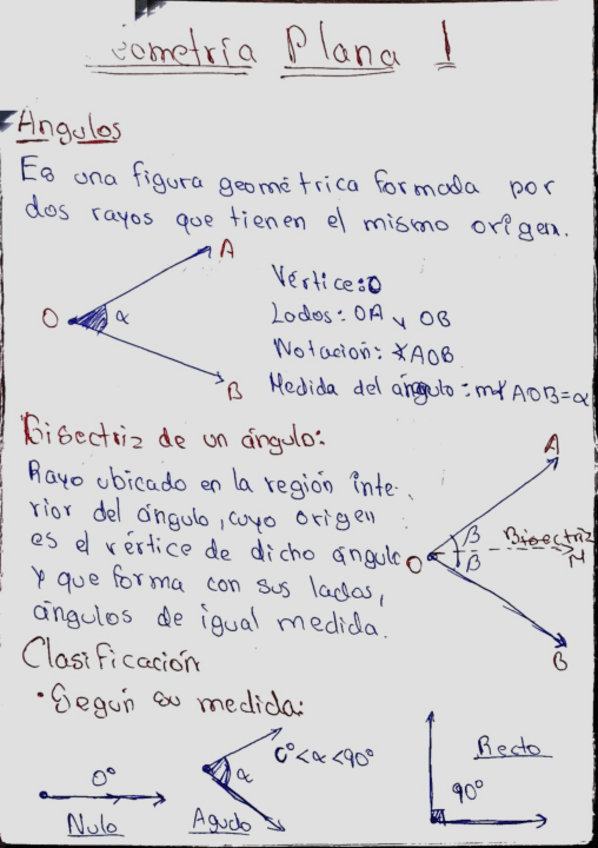 eometría Plana 1
Angulos
Es una figura geométrica formada por
dos rayos que tienen el mismo origen.
A
O α
B
Vértice: O
Lados: OA y OB
Notación: ∢AOB
Medida del ángulo: m∢AOB=α
Bisectriz de un ángulo:
Rayo ubicado en la región inte-
rior del ángulo, cuyo origen
es el vértice de dicho ángulo
y que forma con sus lados,
ángulos de igual medida.
A
β
β
Bisectriz
O
M
B
Clasificación
• Según su medida:
0°
Nulo
α
0°<α<90°
Agudo
Recto
90°